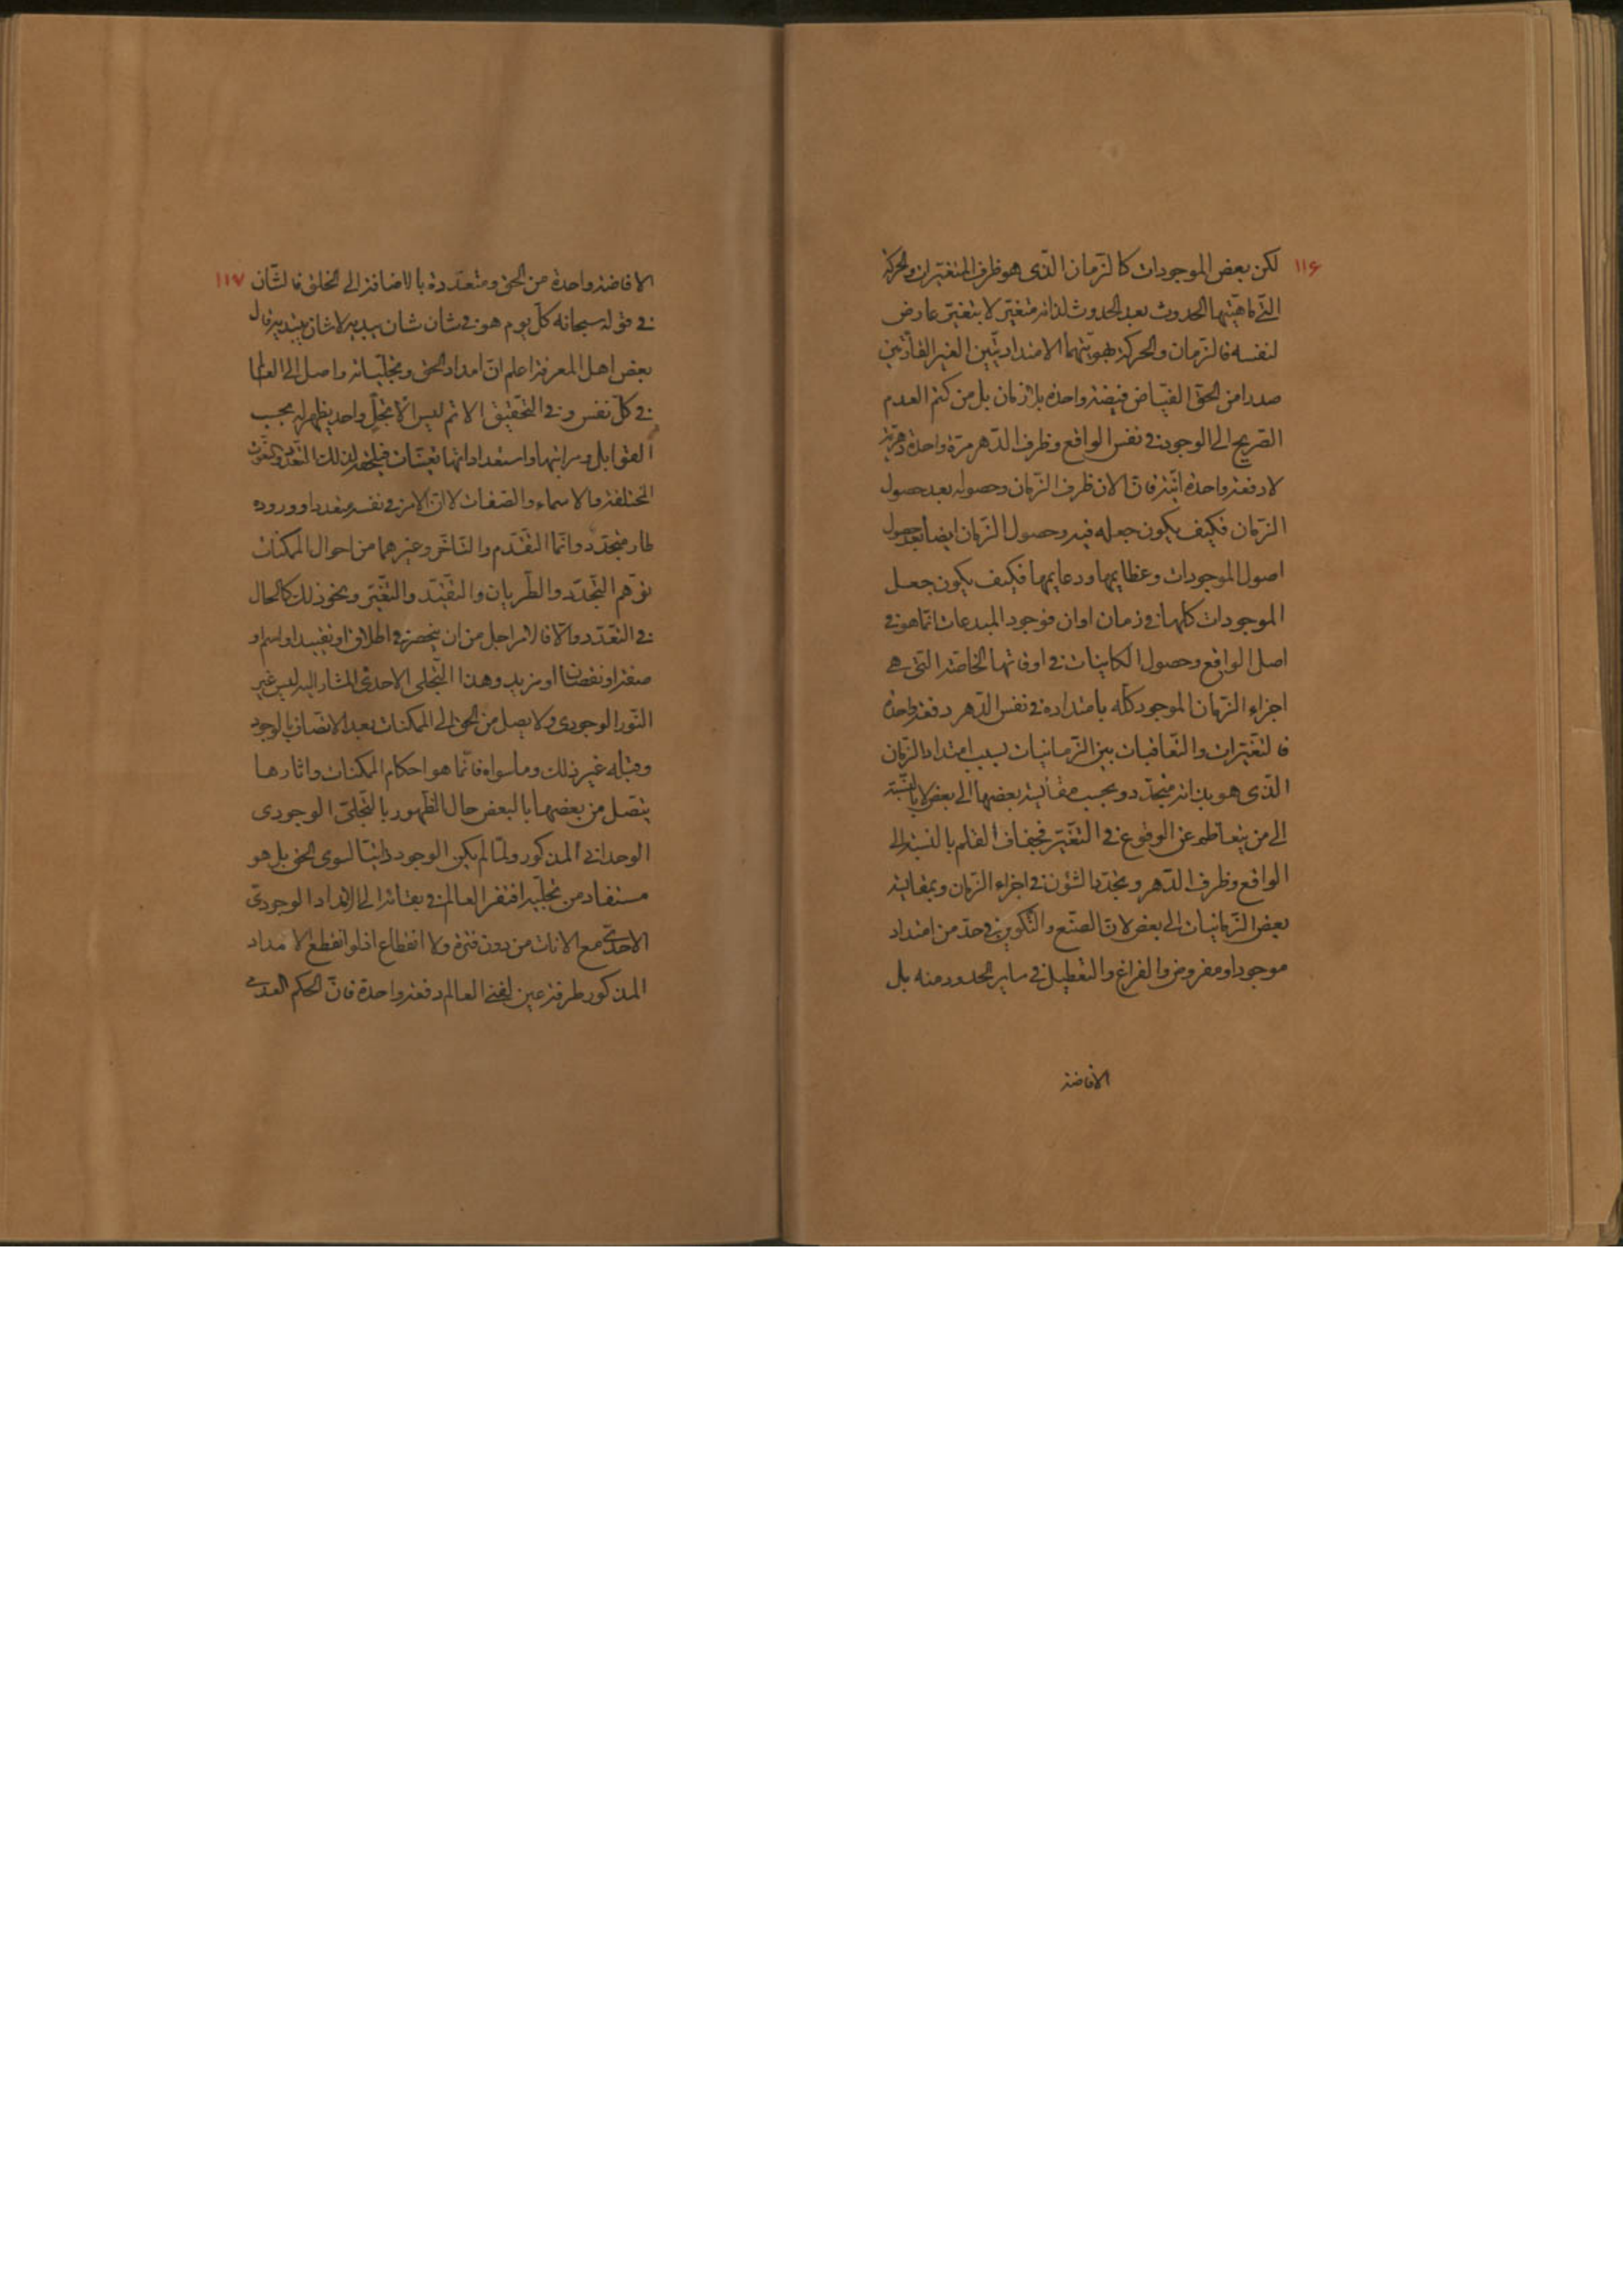 ١١۶
لكن بعض الموجودات كالزّمان الّذى هو ظرف المتغيّرات والحركة
الّتى ماهيّتها الحدوث بعد الحدوث لذاته متغيّر لا بتغيّر عارض
لنفسه فالزّمان والحركة بهويّتهما الامتداديّتين الغير القارّتين
صدرا من الحقّ الفيّاض فيضة واحدة بلا زمان بل من كتم العدم
الصّريح الى الوجود فى نفس الواقع وظرف الدّهر مرّة واحدة دهريّة
لا دفعة واحدة انيّة فانّ الان ظرف الزّمان وحصوله بعد حصول
الزّمان فكيف يكون جعله فيه وحصول الزّمان ايضا بعد حصول
اصول الموجودات وعظايمها ودعايمها فكيف يكون جعل
الموجودات كلّها فى زمان او ان فوجود المبدعات انّما هو فى
اصل الواقع وحصول الكاينات فى اوقاتها الخاصّة الّتى هى
اجزاء الزّمان الموجود كلّه بامتداده فى نفس الدّهر دفعة واحدة
فالتّغيّرات والتّعاقبات بين الزّمانيات بسبب امتداد الزّمان
الّذى هو بذاته متجدّد وبحسب مقايسة بعضها الى بعض لا بالنّسبة
الى من يتعاظم عن الوقوع فى التّغيّر فجفاف القلم بالنّسبة الى
الواقع وظرف الدّهر وتجدّد الشئون فى اجزاء الزّمان وبمقايسة
بعض الزّمانيات الى بعض لانّ الصّنع والتّكوين فى حدّ من امتداد
موجود او مفروض والفراغ والتعطيل فى ساير الحدود منه بل
الافاضة
١١٧
الافاضة واحدة من الحق ومتعدّدة بالاضافة الى الخلق فالشّان
فى قوله سبحانه كلّ يوم هو فى شان شان يبديه لا شان يبتديه قال
بعض اهل المعرفة اعلم انّ امداد الحق وتجلّياته واصل الى العالم
فى كلّ نفس وفى التّحقيق الاتم ليس الّا تجلّ واحد يظهر له بحسب
القوابل ومراتبها واستعداداتها تعيّنات فيلحقه لذلك التّعدّد والنّعوت
المختلفة والاسماء والصّفات لا انّ الامر فى نفسه متعدد او وروده
طار متجدّد وانّما التّقدّم والتّاخّر وغيرهما من احوال الممكنات
توهّم التّجدّد والطّريان والتّقيّد والتّغيّر ونحو ذلك كالحال
فى التّعدّد والّا فالامر اجل من ان ينحصر فى اطلاق او تقييد او اسم او
صفة او نقصان او مزيد وهذا التّجلى الاحدى المشار اليه ليس غير
النّور الوجودى ولا يصل من الحق الى الممكنات بعد الاتّصاف بالوجود
وقبله غير ذلك وما سواه فانّما هو احكام الممكنات واثارها
يتّصل من بعضها بالبعض حال الظّهور بالتّجلىّ الوجودى
الوحدانى المذكور ولمّا لم يكن الوجود ذاتيّا لسوى الحق بل هو
مستفاد من تجلّيه افتقر العالم فى بقائه الى الامداد الوجودىّ
الاحدىّ مع الانات من دون فترة ولا انقطاع اذ لو انقطع الامداد
المذكور طرفة عين لفنى العالم دفعة واحدة فانّ الحكم العدمى